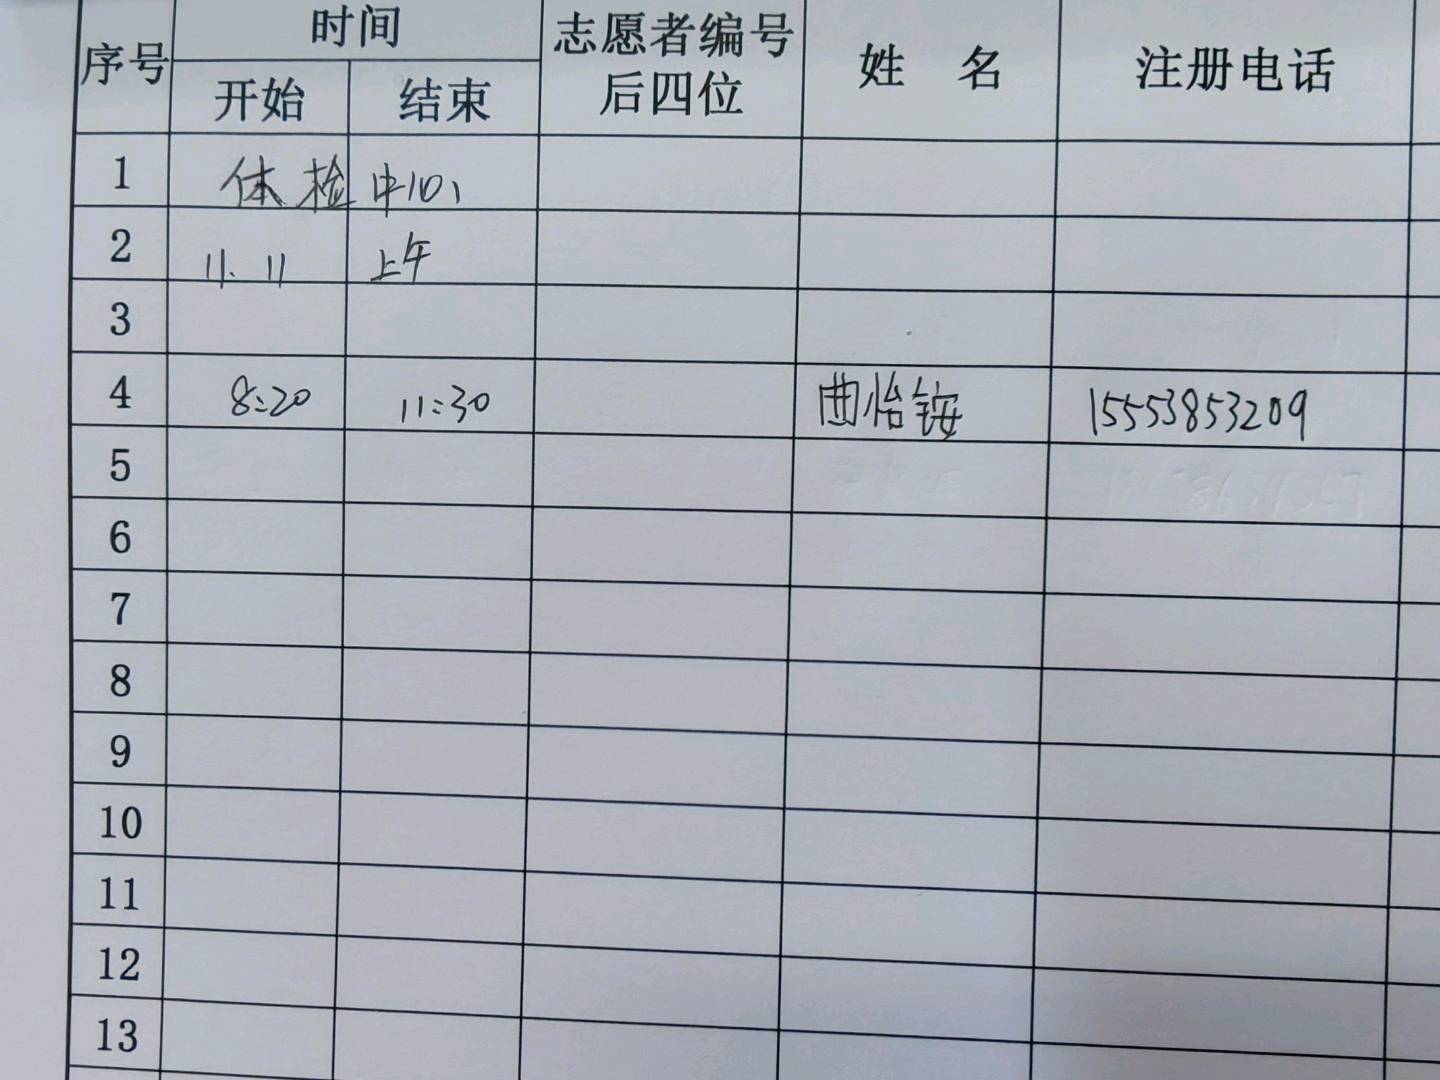 序号 时间 志愿者编号后四位 姓 名 注册电话
开始 结束
1 体检中心
2 11.11 上午
3
4 8:20 11:30 曲怡铵 15553853209
5
6
7
8
9
10
11
12
13